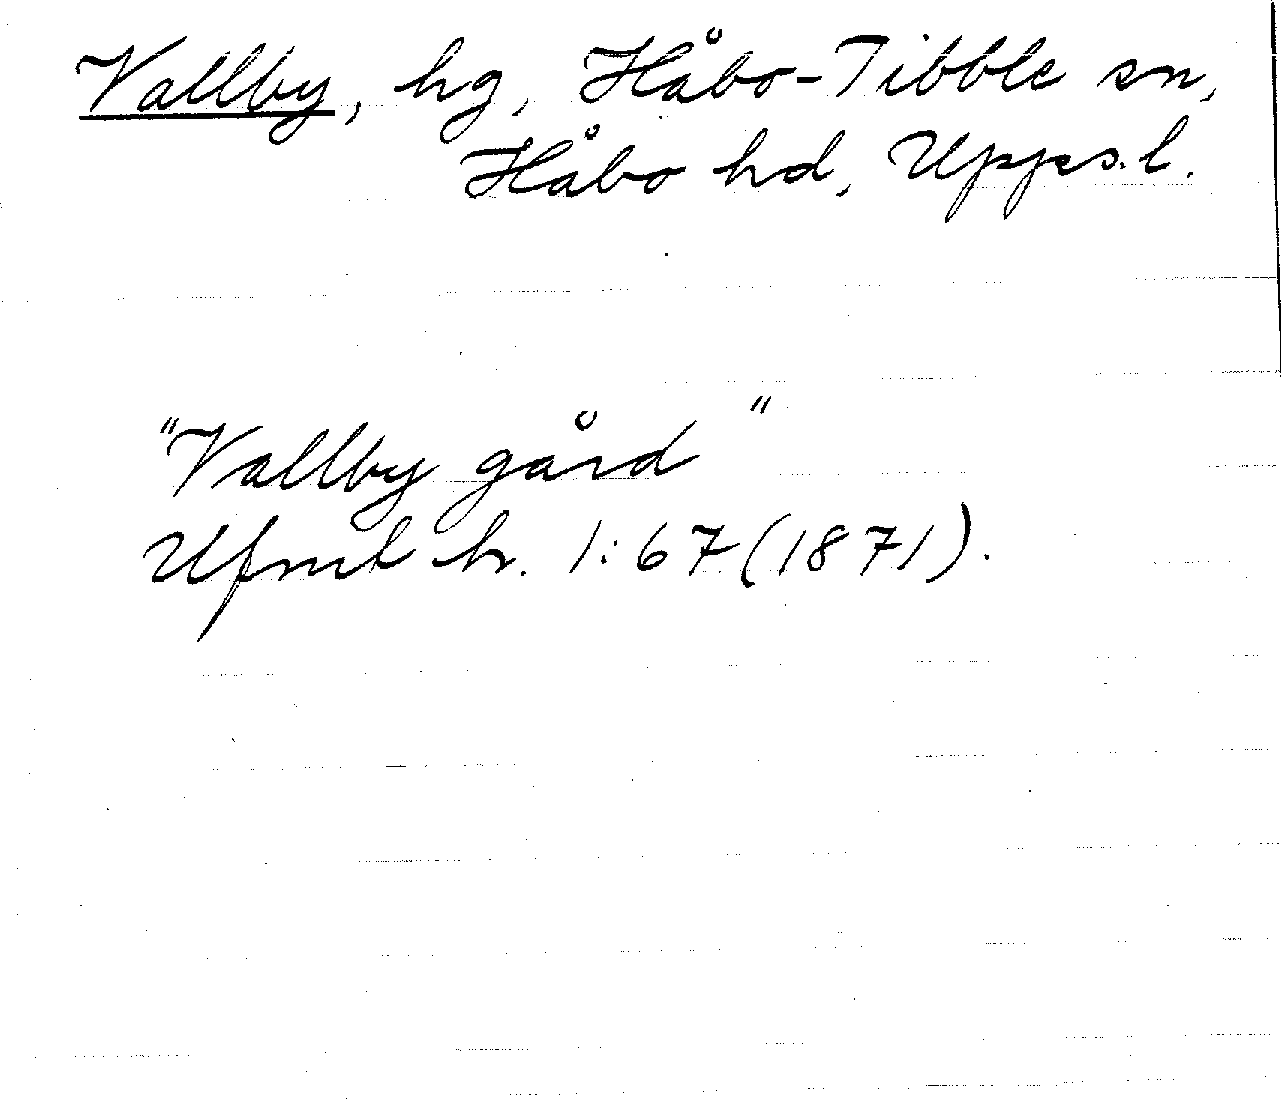 Vallby, hg, Håbo-Tibble sn,
Håbo hd, Upps.l.
"Vallby gård"
Ufmt h. 1:67 (1871).